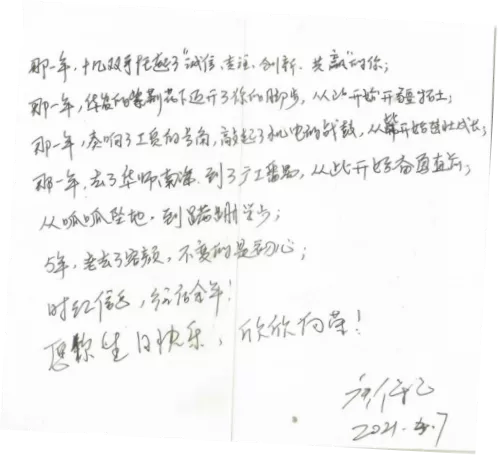 那一年，十几双手托起了“诚信、专注、创新、共赢”的你；
那一年，华发的紫荆花下迈开了你的脚步，从此开始开疆拓土；
那一年，奏响了工贸的号角，敲起了机电的战鼓，从此开始茁壮成长；
那一年，去了华师南海，到了广工番禺，从此开始奋勇直前；
从呱呱坠地，到蹒跚学步；
5年，老去了容颜，不变的是初心；
时红
余年！
生日快乐，欣欣向荣！
2021.4.7